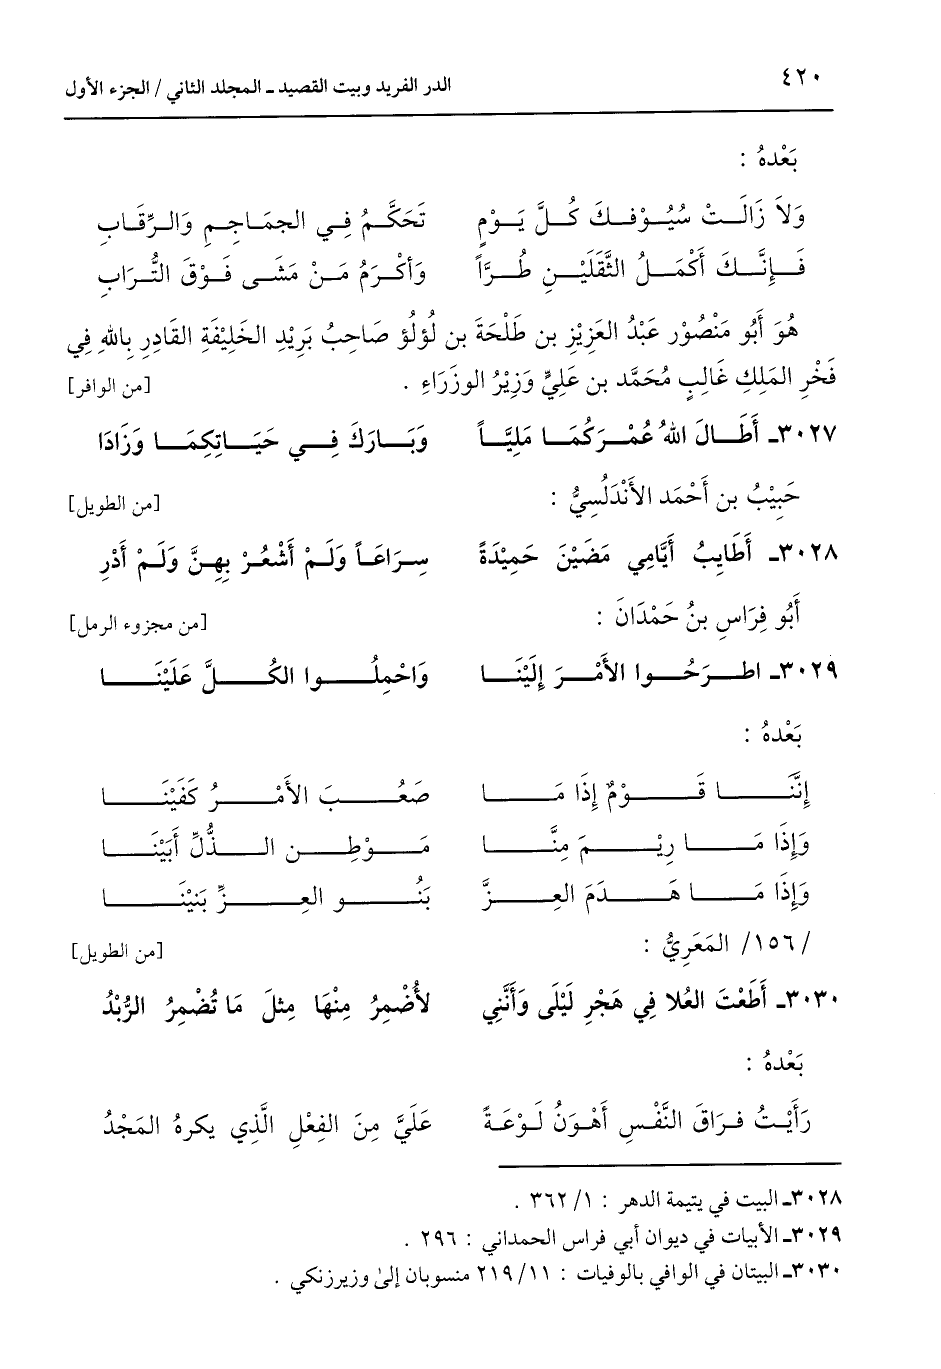 ٤٢٠
الدر الفريد وبيت القصيد ـ المجلد الثاني / الجزء الأول
بَعْدهُ :
وَلاَ زَالَتْ سُيُوْفكَ كُلَّ يَوْمٍ تَحَكَّمُ فِي الجمَاجِمِ وَالرِّقَابِ
فَإِنَّكَ أَكْمَلُ الثَّقَلَيْنِ طُرّاً وَأكْرَمُ مَنْ مَشَى فَوْقَ التُّرَابِ
هُوَ أَبُو مَنْصُوْر عَبْدُ العَزِيْزِ بن طَلْحَةَ بن لُؤلُؤ صَاحِبُ بَرِيْدِ الخَلِيْفَةِ القَادِرِ بِاللهِ فِي
فَخْرِ المَلِكِ غَالِبٍ مُحَمَّد بن عَلِيٍّ وَزِيْرُ الوزَرَاءِ . [من الوافر]
٣٠٢٧ـ أَطَالَ اللهُ عُمْرَكُمَا مَلِيَّاً وَبَارَكَ فِي حَيَاتِكِمَا وَزَادَا
حَبِيْبُ بن أَحْمَد الأَنْدَلُسِيُّ : [من الطويل]
٣٠٢٨ـ أَطَايِبُ أَيَّامِي مَضَيْنَ حَمِيْدَةً سِرَاعَاً وَلَمْ أَشْعُرْ بِهِنَّ وَلَمْ أَدْرِ
أَبُو فِرَاسِ بنُ حَمْدَانَ : [من مجزوء الرمل]
٣٠٢٩ـ اطرَحُوا الأَمْرَ إِلَيْنَا وَاحْمِلُوا الكُلَّ عَلَيْنَا
بَعْدهُ :
إِنَّنَا قَوْمٌ إِذَا مَا صَعُبَ الأَمْرُ كَفَيْنَا
وَإِذَا مَا رِيْمَ مِنَّا مَوْطِن الذُّلِّ أَبَيْنَا
وَإِذَا مَا هَدَمَ العِزَّ بَنُو العِزِّ بَنَيْنَا
/١٥٦/ المَعَرِيُّ : [من الطويل]
٣٠٣٠ـ أَطَعْتَ العُلا فِي هَجْرِ لَيْلَى وَأَنَّنِي لأُضْمِرُ مِنْهَا مِثلَ مَا تُضْمِرُ الرُّبْدُ
بَعْدهُ :
رَأَيْتُ فرَاقَ النَّفْسِ أَهْوَنُ لَوْعَةً عَلَيَّ مِنَ الفِعْلِ الَّذِي يكرهُ المَجْدُ
٣٠٢٨ـ البيت في يتيمة الدهر : ٣٦٢/١ .
٣٠٢٩ـ الأبيات في ديوان أبي فراس الحمداني : ٢٩٦ .
٣٠٣٠ـ البيتان في الوافي بالوفيات : ٢١٩/١١ منسوبان إلىٰ وزيرزنكي .